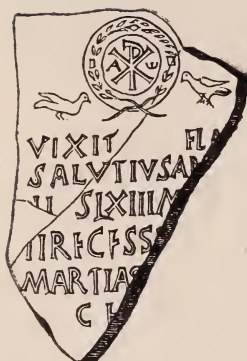 Α Ѡ
VIXIT FLA
SALVTIVSAN
II SLXIIIM
IIRECESS
MARTIAS
C L